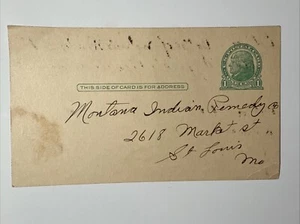 THIS SIDE OF CARD IS FOR ADDRESS
Montana Indian Remedy Co
2618 Market st
St Louis
Mo